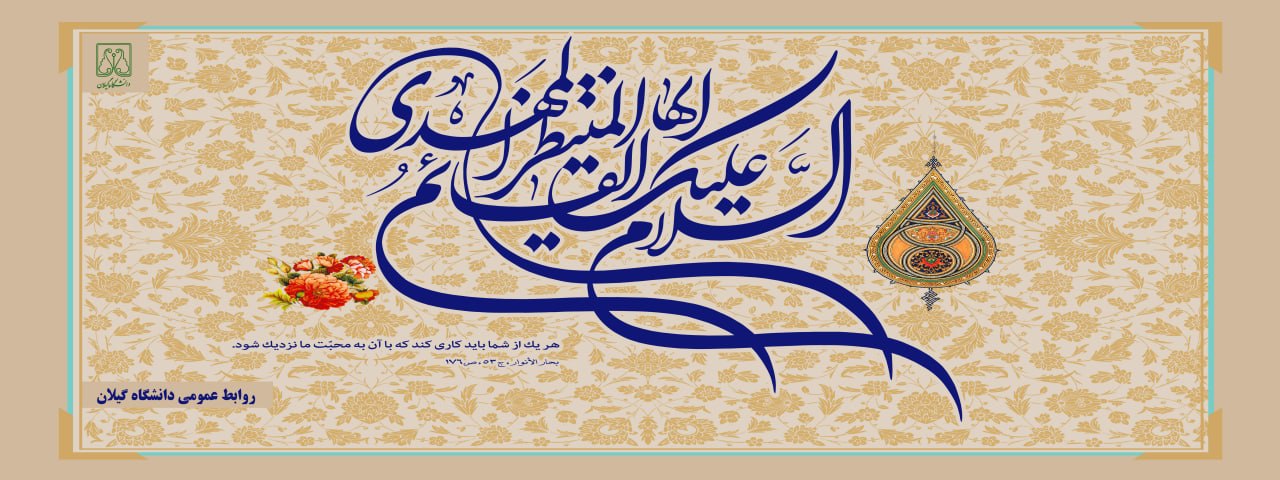 السَّلام علیک ایها القائمُ المنتظر المهدی
هر یک از شما باید کاری کند که با آن به محبّت ما نزدیک شود.
بحار الأنوار، ج ۵۳، ص ۱۷۶
روابط عمومی دانشگاه گیلان
دانشگاه گیلان